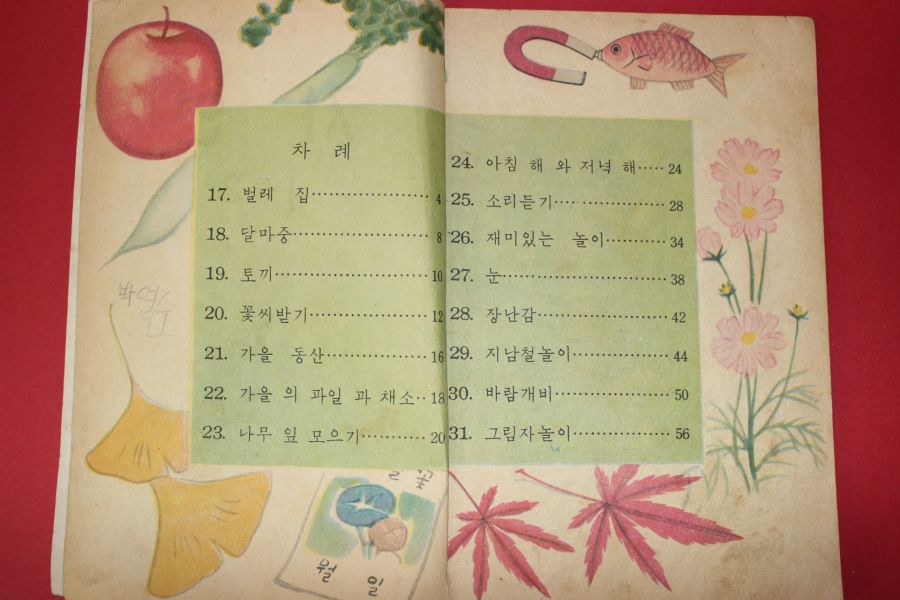 차 례
17. 벌레 집 4
18. 달마중 8
19. 토끼 10
20. 꽃씨받기 12
21. 가을 동산 16
22. 가을 의 과일 과 채소 18
23. 나무 잎 모으기 20
24. 아침 해 와 저녁 해 24
25. 소리듣기 28
26. 재미있는 놀이 34
27. 눈 38
28. 장난감 42
29. 지남철놀이 44
30. 바람개비 50
31. 그림자놀이 56
꽃
월 일